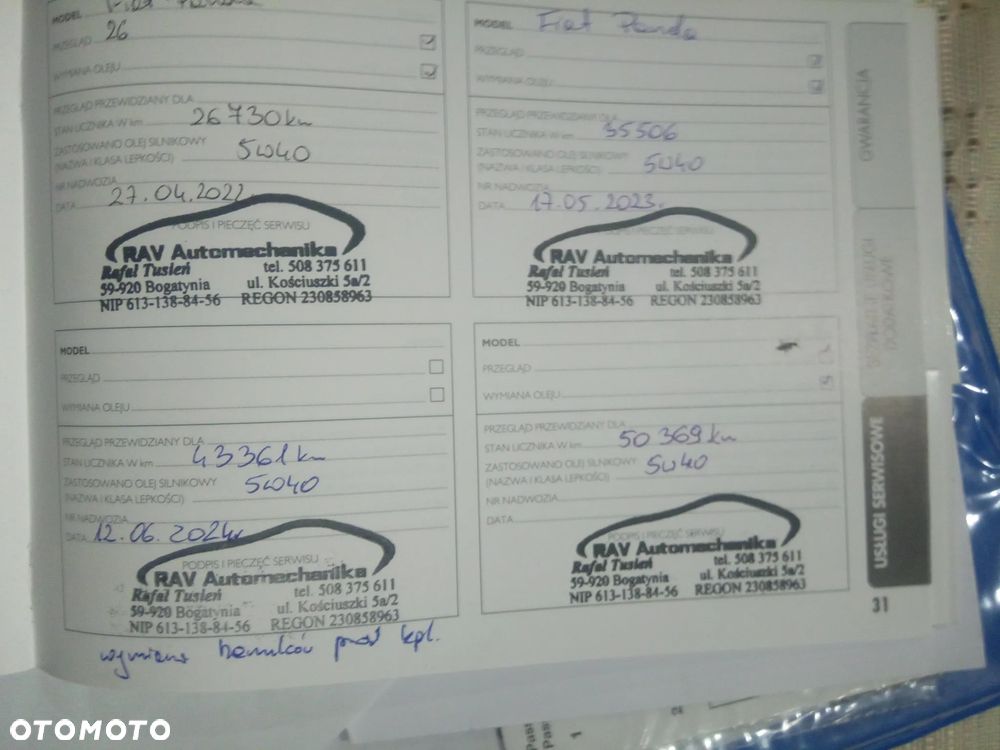 MODEL Fiat Panda
PRZEGLĄD 26
WYMIANA OLEJU
PRZEGLĄD PRZEWIDZIANY DLA
STAN LICZNIKA W km 26730 km
ZASTOSOWANO OLEJ SILNIKOWY
(NAZWA I KLASA LEPKOŚCI) 5W40
NR NADWOZIA
DATA 27.04.2022
PODPIS I PIECZĘĆ SERWISU
RAV Automechanika
Rafał Tusień tel. 508 375 611
59-920 Bogatynia ul. Kościuszki 5a/2
NIP 613-138-84-56 REGON 230858963
MODEL Fiat Panda
PRZEGLĄD
WYMIANA OLEJU
PRZEGLĄD PRZEWIDZIANY DLA
STAN LICZNIKA W km 35506
ZASTOSOWANO OLEJ SILNIKOWY
(NAZWA I KLASA LEPKOŚCI) 5W40
NR NADWOZIA
DATA 17.05.2023r
PODPIS I PIECZĘĆ SERWISU
RAV Automechanika
Rafał Tusień tel. 508 375 611
59-920 Bogatynia ul. Kościuszki 5a/2
NIP 613-138-84-56 REGON 230858963
MODEL
PRZEGLĄD
WYMIANA OLEJU
PRZEGLĄD PRZEWIDZIANY DLA
STAN LICZNIKA W km 43361 km
ZASTOSOWANO OLEJ SILNIKOWY
(NAZWA I KLASA LEPKOŚCI) 5W40
NR NADWOZIA
DATA 12.06.2024r
PODPIS I PIECZĘĆ SERWISU
RAV Automechanika
Rafał Tusień tel. 508 375 611
59-920 Bogatynia ul. Kościuszki 5a/2
NIP 613-138-84-56 REGON 230858963
wymiana hamulców przód kpl.
MODEL
PRZEGLĄD
WYMIANA OLEJU
PRZEGLĄD PRZEWIDZIANY DLA
STAN LICZNIKA W km 50369 km
ZASTOSOWANO OLEJ SILNIKOWY
(NAZWA I KLASA LEPKOŚCI) 5W40
NR NADWOZIA
DATA
PODPIS I PIECZĘĆ SERWISU
RAV Automechanika
Rafał Tusień tel. 508 375 611
59-920 Bogatynia ul. Kościuszki 5a/2
NIP 613-138-84-56 REGON 230858963
GWARANCJA
BEZPŁATNE USŁUGI
DODATKOWE
USŁUGI SERWISOWE
31
OTOMOTO